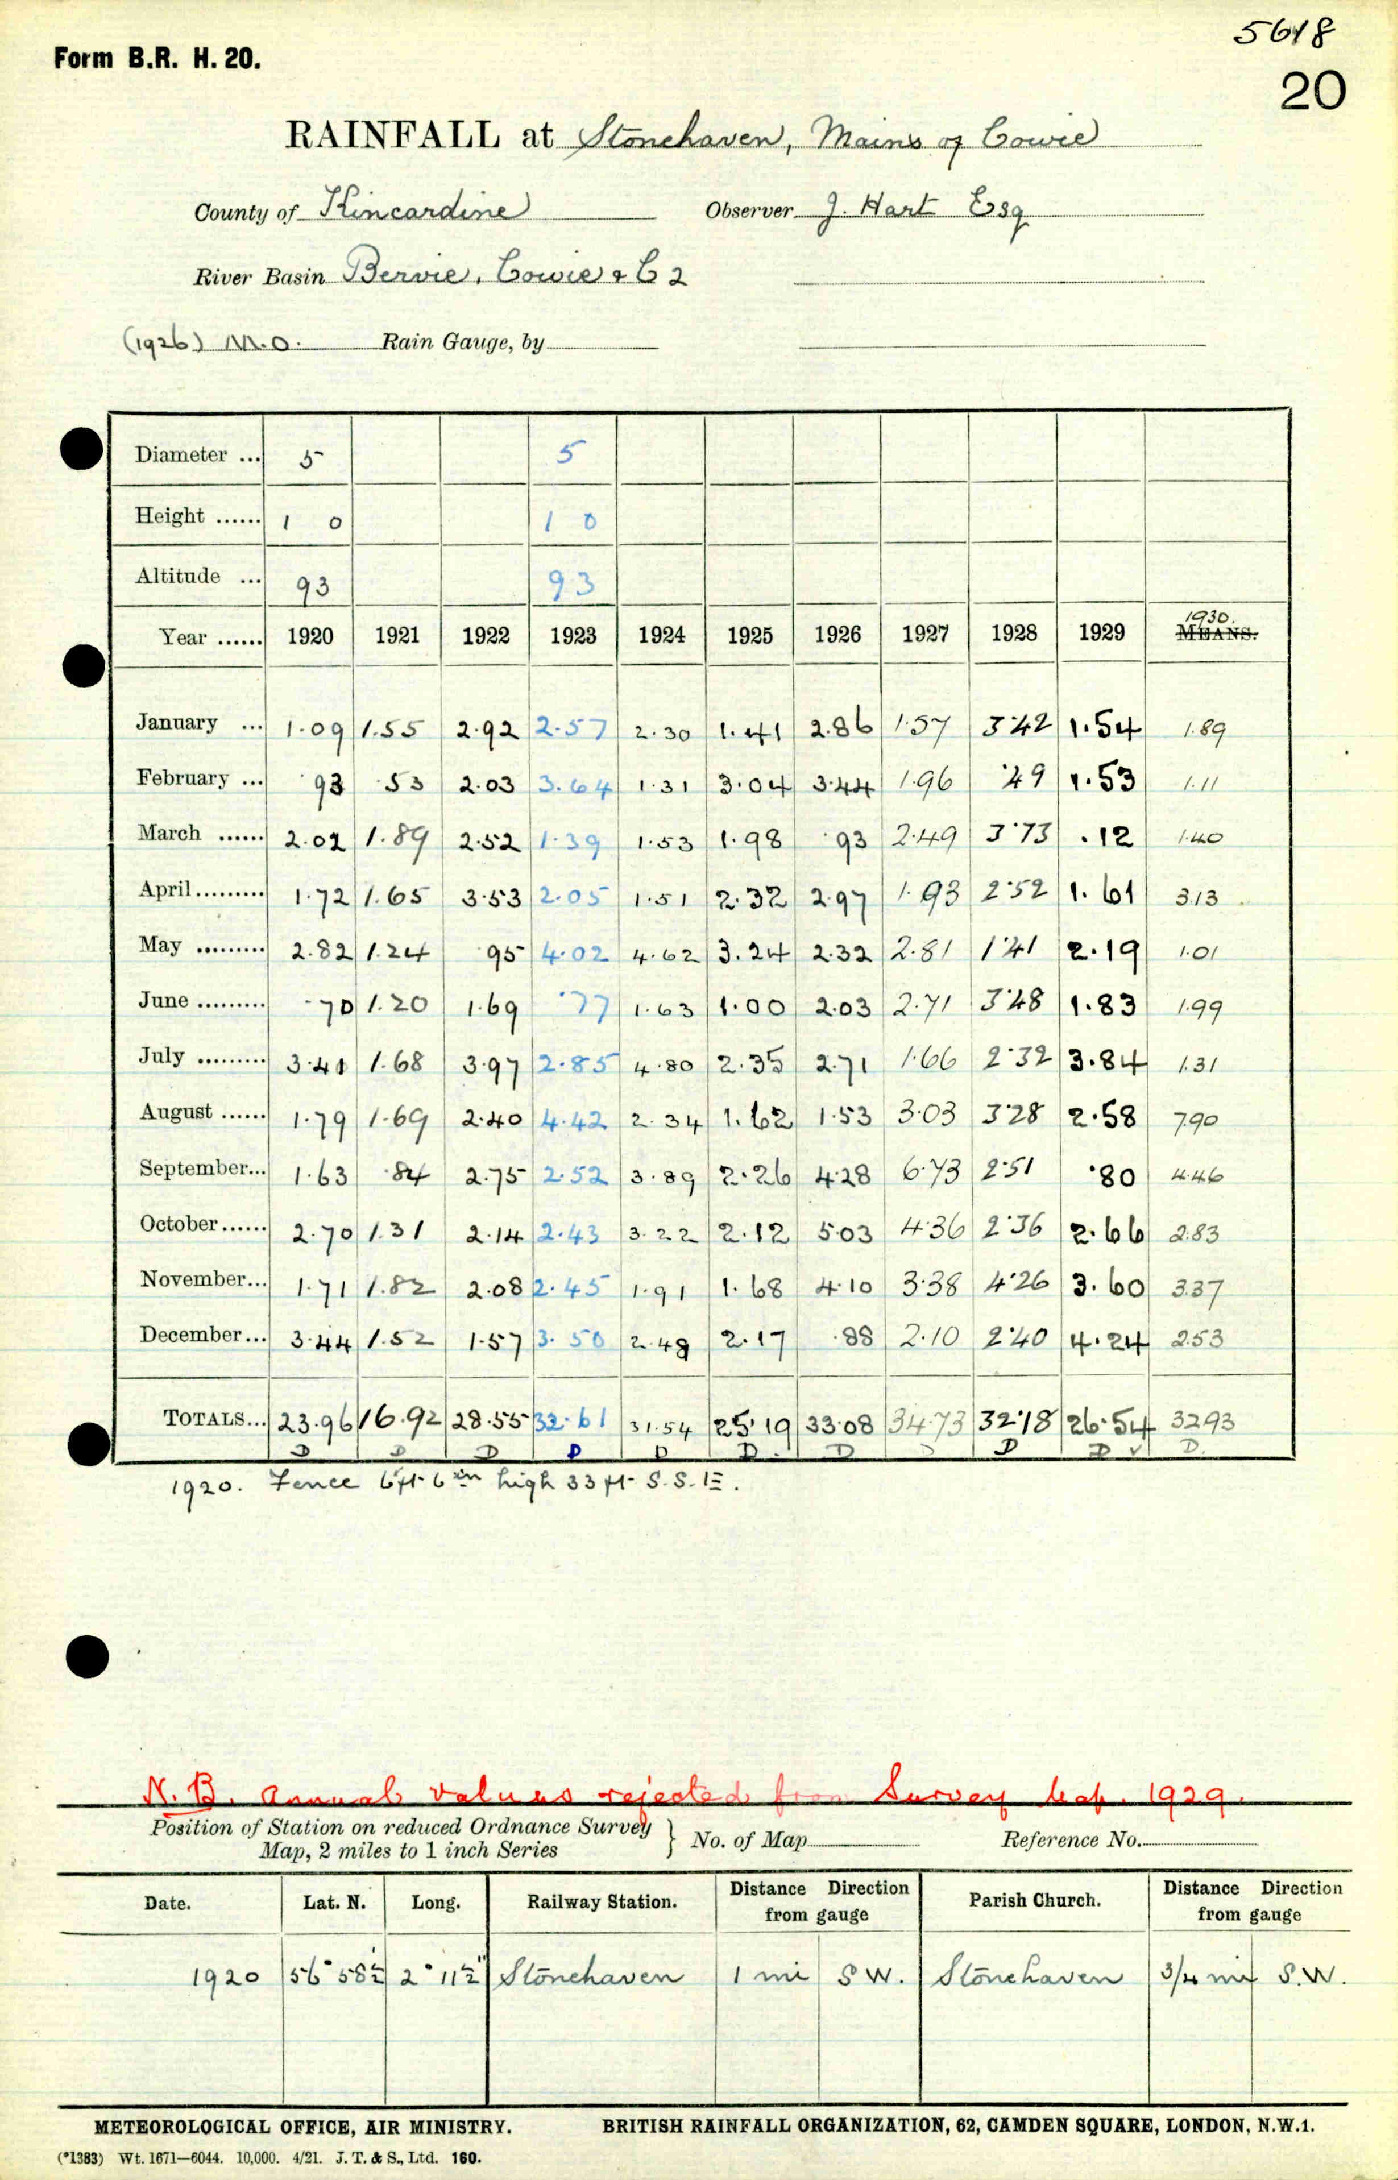 5618
Form B.R. H. 20.
20
RAINFALL at Stonehaven, Mains of Cowie
County of Kincardine Observer J. Hart Esq
River Basin Bervie, Cowie & C 2
(1926) M.O. Rain Gauge, by
Diameter ... 5 5
Height ...... 1 0 1 0
Altitude ... 93 93
Year ...... 1920 1921 1922 1923 1924 1925 1926 1927 1928 1929 1930. MEANS.
January ... 1.09 1.55 2.92 2.57 2.30 1.41 2.86 1.57 3.42 1.54 1.89
February ... .93 .53 2.03 3.64 1.31 3.04 3.44 1.96 .49 1.53 1.11
March ...... 2.02 1.89 2.52 1.39 1.53 1.98 .93 2.49 3.73 .12 1.40
April ......... 1.72 1.65 3.53 2.05 1.51 2.32 2.97 1.93 2.52 1.61 3.13
May ......... 2.82 1.24 95 4.02 4.62 3.24 2.32 2.81 1.41 2.19 1.01
June ......... .70 1.20 1.69 .77 1.63 1.00 2.03 2.71 3.48 1.83 1.99
July ......... 3.41 1.68 3.97 2.85 4.80 2.35 2.71 1.66 2.32 3.84 1.31
August ...... 1.79 1.69 2.40 4.42 2.34 1.62 1.53 3.03 3.28 2.58 7.90
September... 1.63 .84 2.75 2.52 3.89 2.26 4.28 6.73 2.51 .80 4.46
October...... 2.70 1.31 2.14 2.43 3.22 2.12 5.03 4.36 2.36 2.66 2.83
November... 1.71 1.82 2.08 2.45 1.91 1.68 4.10 3.38 4.26 3.60 3.37
December... 3.44 1.52 1.57 3.50 2.48 2.17 .88 2.10 2.40 4.24 2.53
TOTALS... 23.96 16.92 28.55 32.61 31.54 25.19 33.08 34.73 32.18 26.54 32.93
D D D D D D. D D D D ✓ D.
1920. Fence 6ft 6in high 33 ft S.S.E.
N.B. Annual values rejected from Survey 1929.
Position of Station on reduced Ordnance Survey
Map, 2 miles to 1 inch Series } No. of Map Reference No.
Date. Lat. N. Long. Railway Station. Distance Direction from gauge Parish Church. Distance Direction from gauge
1920 56° 58½' 2° 11½' Stonehaven 1 mi S W. Stonehaven 3/4 mi S.W.
METEOROLOGICAL OFFICE, AIR MINISTRY. BRITISH RAINFALL ORGANIZATION, 62, CAMDEN SQUARE, LONDON, N.W.1.
(*1383) Wt. 1671—6044. 10,000. 4/21. J. T. & S., Ltd. 160.